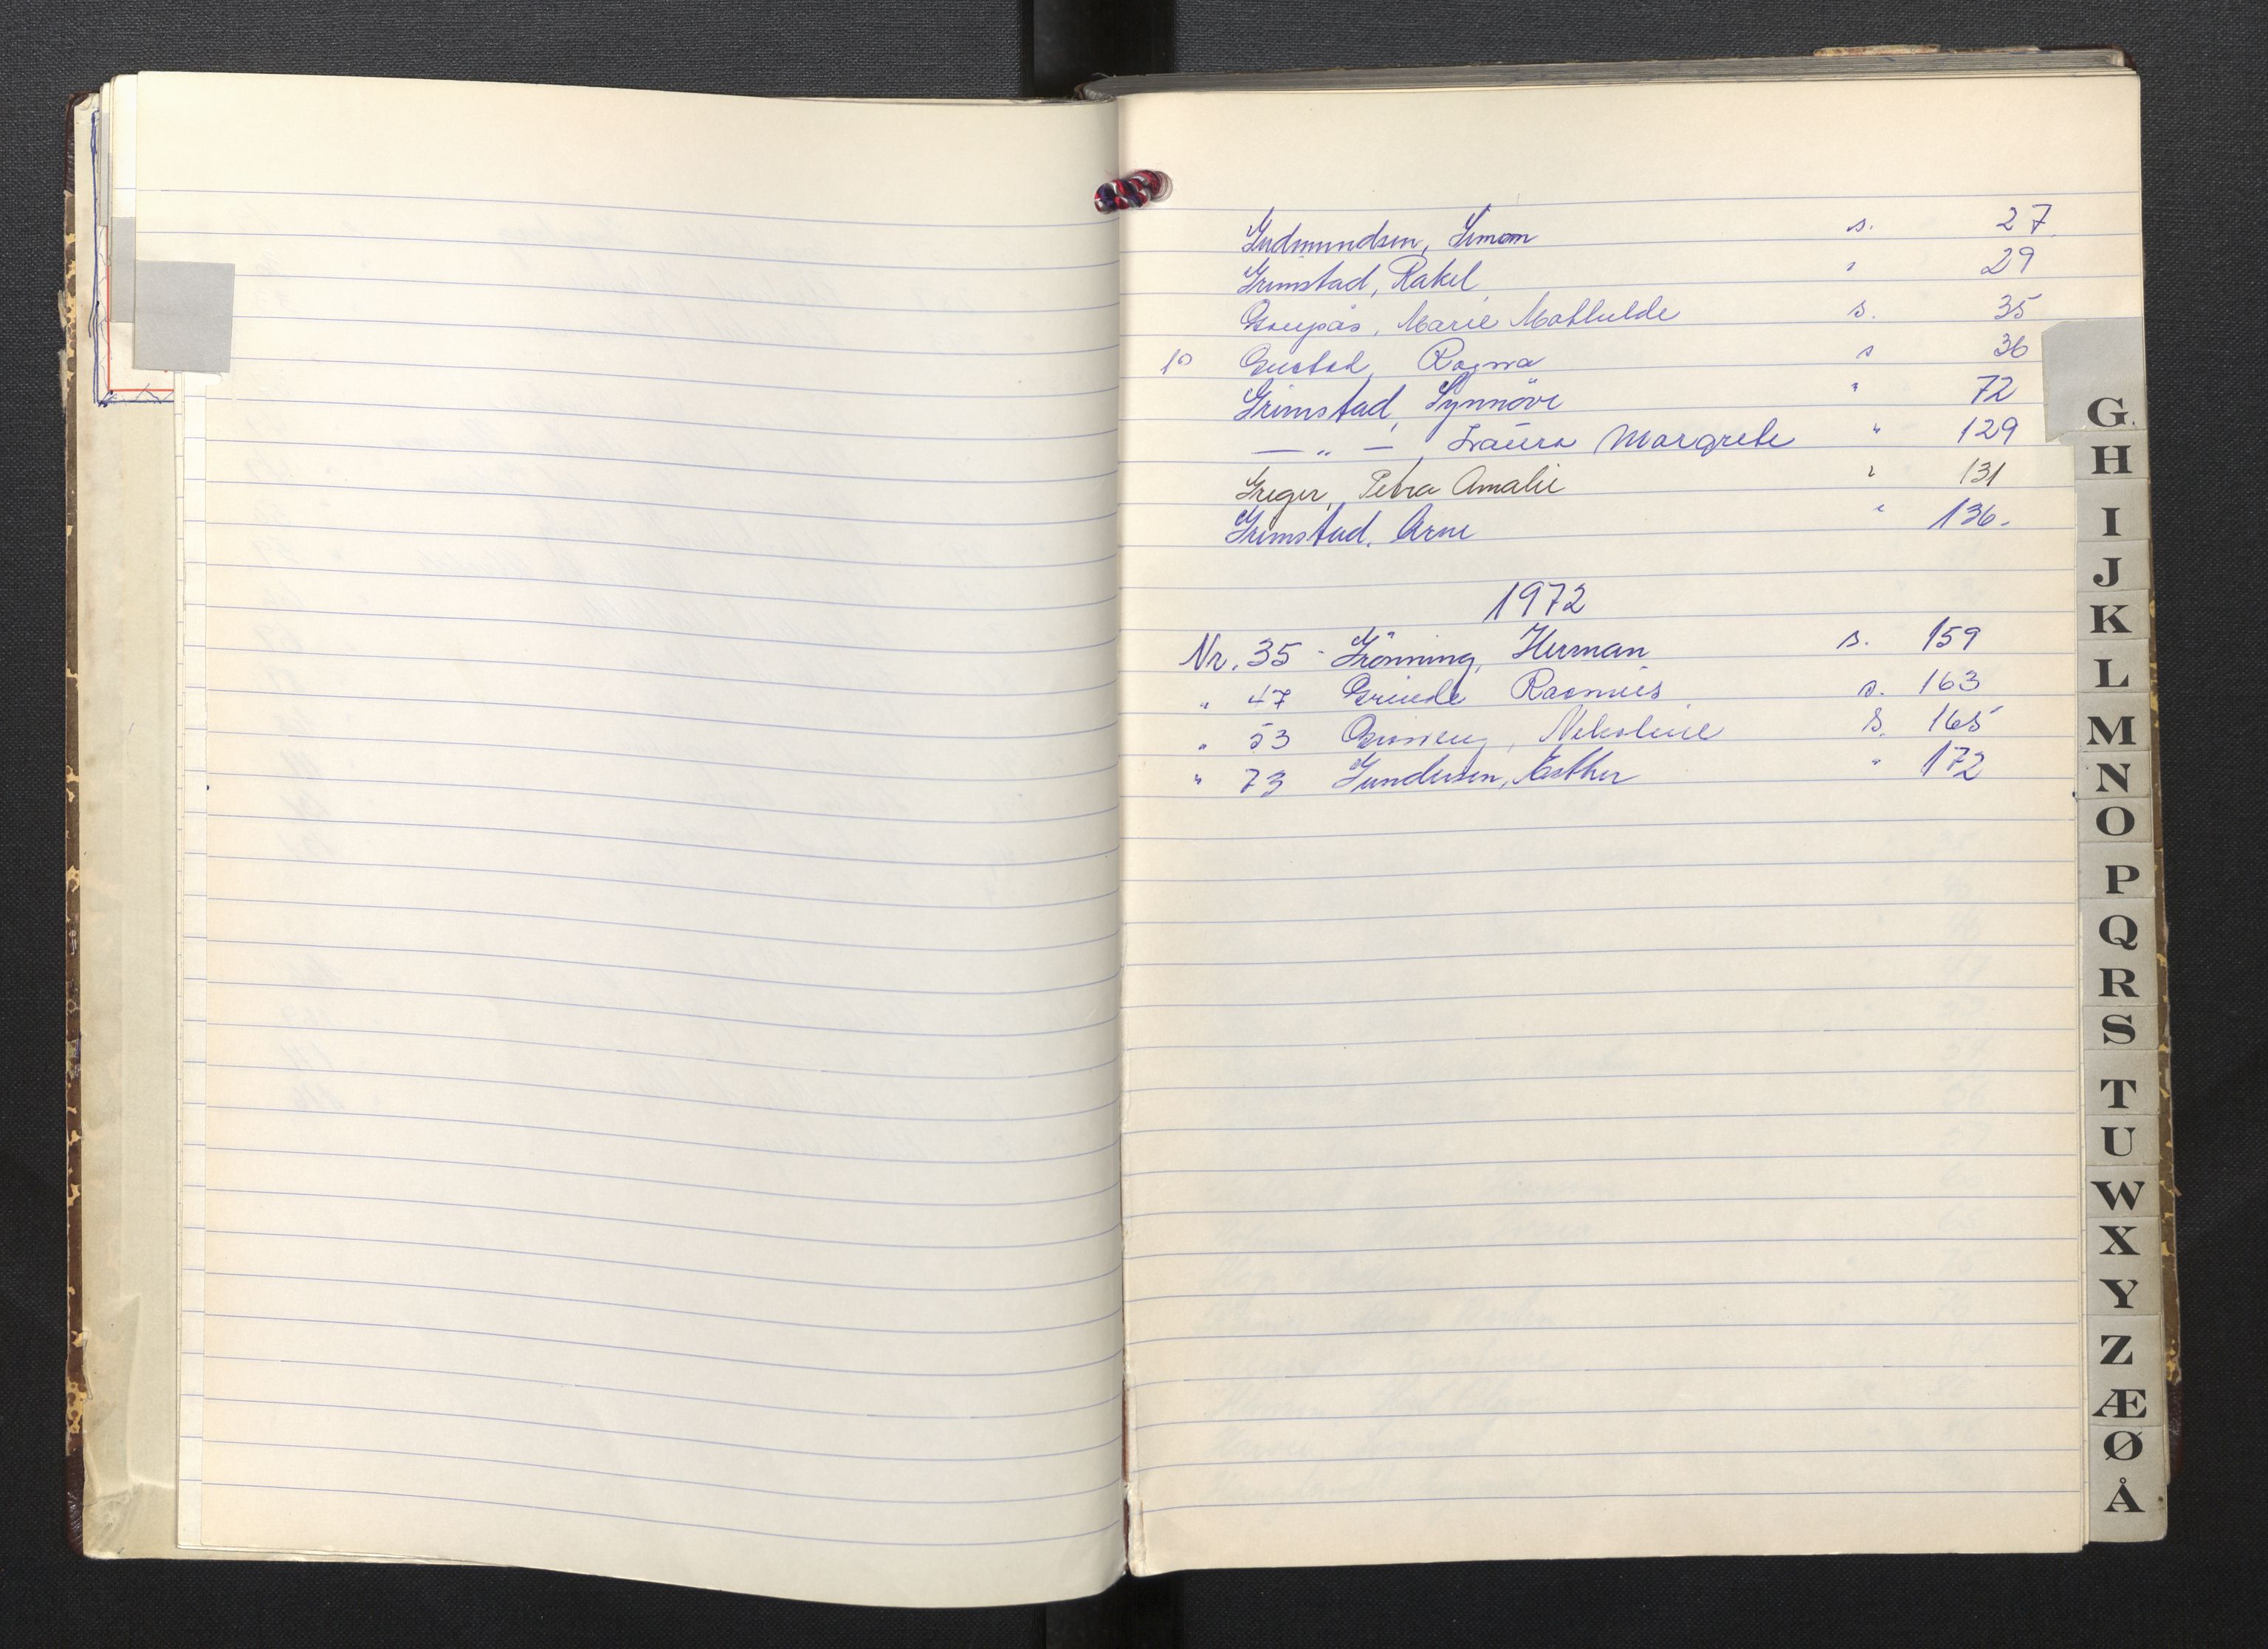 Gudmundsen, Simon s. 27.
Grimstad, Rakel " 29
Marie Mathilde s. 35
10 Gustad, Ragna s 36
Grimstad, Synnöve " 72
— " — , Laura Margrete " 129
Greger, Petra Amalie " 131
Grimstad, Arne " 136.
1972
Nr. 35 - Grönning, Herman s. 159
" 47 Grinde Rasmus s. 163
" 53 Nikoline s. 165
" 73 Gundersen, Esther " 172
G.
H
I
J
K
L
M
N
O
P
Q
R
S
T
U
W
X
Y
Z
Æ
Ø
Å